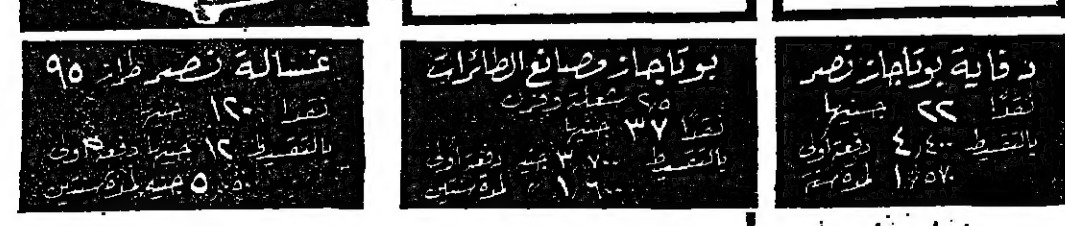 دفاية بوتاجاز نصر
نقدًا ٢٢ جنيها
بالتقسيط ٤,٤٠٠ دفعة أولى
١,٥٧٠ لمدة سنة
بوتاجاز مصانع الطائرات
شعلة وفرن
نقدًا ٣٧ جنيها
بالتقسيط ٣,٧٠٠ جنيه دفعة أولى
١,٦٠٠ لمدة سنتين
غسالة نصر طراز ٩٥
نقدًا ١٢٠ جنيها
بالتقسيط ١٢ جنيها دفعة أولى
جنيه لمدة سنتين